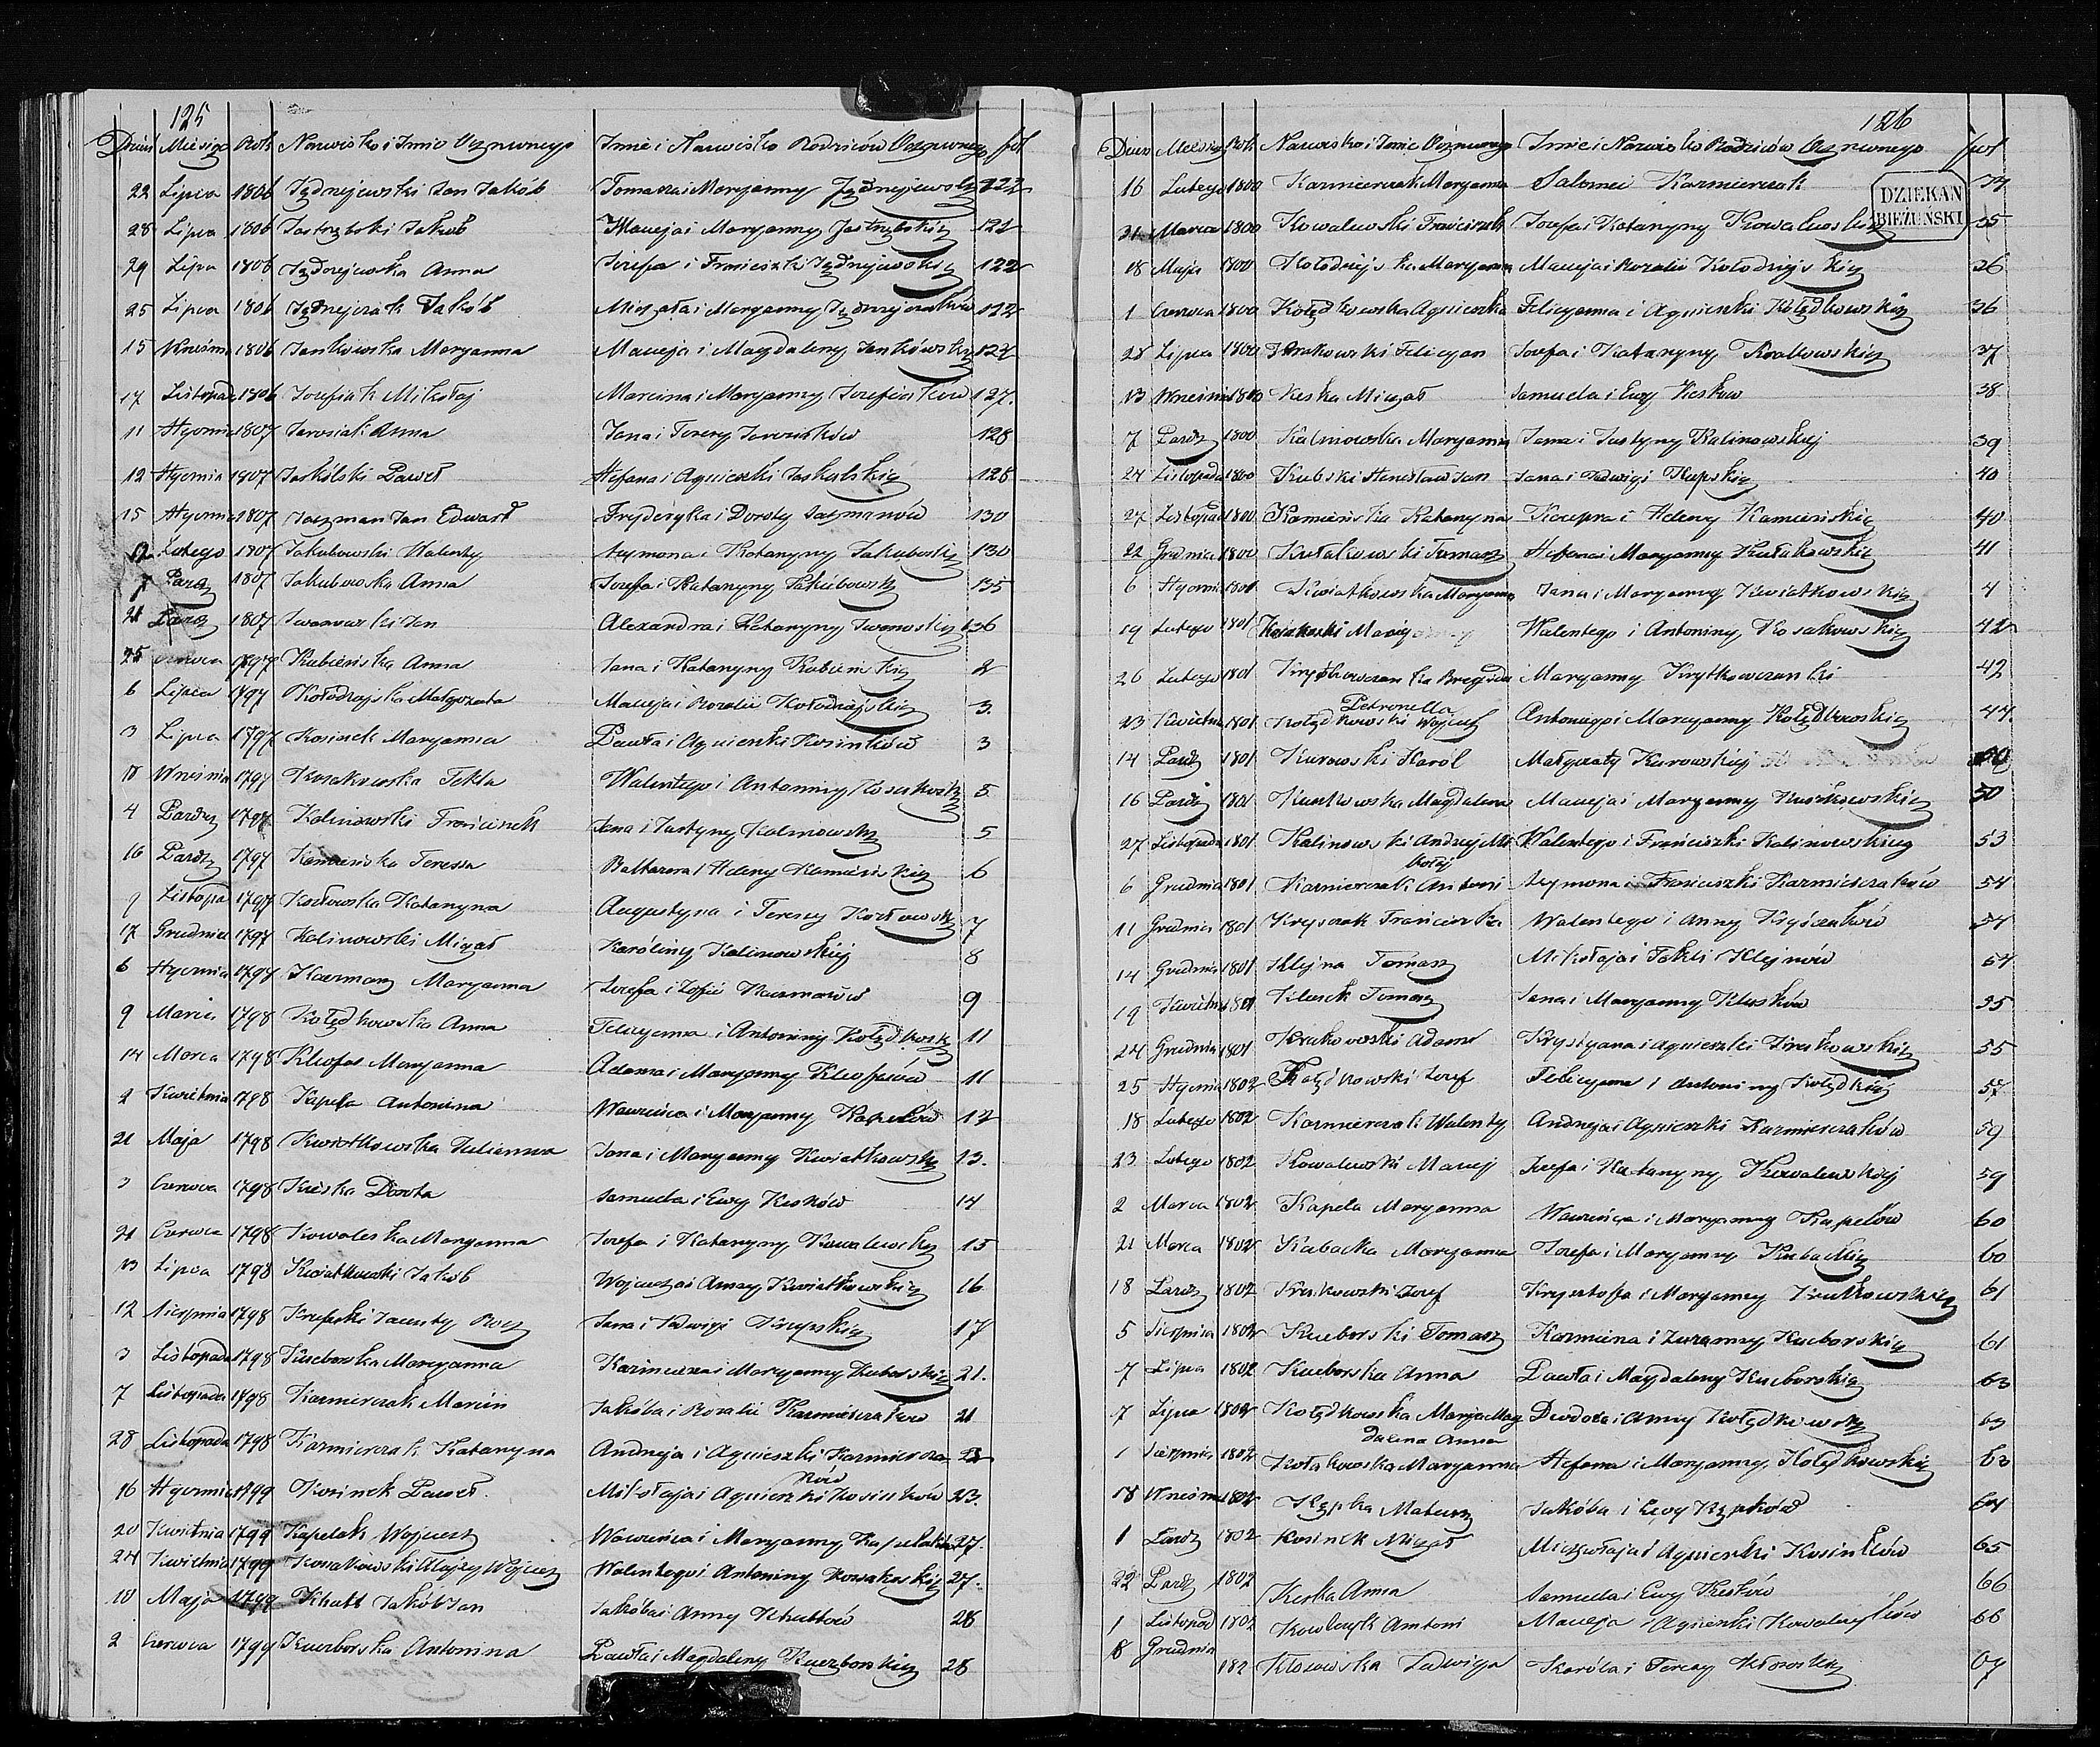 125
Dzień Miesiąc Rok Nazwisko i Imie Ocznewnego Imie i Nazwisko Rodziców Ocznewnego fol
22 Lipca 1806 Jędrzejewski Jan Jakób Tomasza i Maryanny Jędrzejewskich 122
28 Lipca 1806 Jastrzębski Jakób Macieja i Maryanny Jastrzębskich 122
29 Lipca 1806 Jędrzejewska Anna Józefa i Franciszki Jędrzejewskich 122
25 Lipca 1806 Jędrzejczak Jakób Michała i Maryanny Jędrzejczaków 122
15 Września 1806 Jankowska Maryanna Macieja i Magdaleny Jankowskich 124
17 Listopada 1806 Józefiak Mikołaj Marcina i Maryanny Józefiaków 127.
11 Stycznia 1807 Jarosiak Anna Jana i Teresy Jarosiaków 128
12 Stycznia 1807 Jaskólski Paweł Stefana i Agnieszki Jaskulskich 128
15 Stycznia 1807 Jaczman Jan Edward Fryderyka i Doroty Jaczmanów 130
12 Lutego 1807 Jakubowski Walenty Szymona i Katarzyny Jakubowskich 130
7 Parź 1807 Jakubowska Anna Józefa i Katarzyny Jakubowskich 135
21 Parź 1807 Iwanowski Jan Alexandra i Katarzyny Iwanowskich 136
25 Czerwca 1797 Kubińska Anna Jana i Katarzyny Kubińskich 2
6 Lipca 1797 Kołodziejska Małgorzata Macieja i Rozalii Kołodziejskich 3.
3 Lipca 1797 Kosinek Maryanna Pawła i Agnieszki Kosinków 3
18 Września 1797 Kosakowska Tekla Walentego i Antoniny Kosakowskich 5
4 Paźdz 1797 Kalinowski Franciszek Jana i Justyny Kalinowskich 5
16 Paźdz 1797 Kamińska Teressa Baltazara i Heleny Kamińskich 6
9 Listopad 1797 Kozłowska Katarzyna Augustyna i Teresy Kozłowskich 7
17 Grudnia 1797 Kalinowski Michał Karóliny Kalinowskiej 8
6 Stycznia 1798 Kaczmarz Maryanna Józefa i Zofii Kaczmarzów 9
9 Marca 1798 Kołędkowska Anna Felicyana i Antoniny Kołędkowskich 11
14 Marca 1798 Kleofas Maryanna Adama i Maryanny Kleofasów 11
2 Kwietnia 1798 Kapela Antonina Wawrzeńca i Maryanny Kapelów 12
21 Maja 1798 Kwiatkowska Julianna Jana i Maryanny Kwiatkowskich 13.
3 Czerwca 1798 Keska Dorota Samuela i Ewy Kesków 14
21 Czerwca 1798 Kowaleska Maryanna Józefa i Katarzyny Kowalewskich 15
13 Lipca 1798 Kwiatkowski Jakób Wojciecha i Anny Kwiatkowskich 16
12 Sierpnia 1798 Krupski Jacenty Roch Jana i Jadwigi Krupskich 17
3 Listopada 1798 Kucborska Maryanna Kazimierza i Maryanny Kucborskich 21.
7 Listopada 1798 Kazmierczak Marcin Jakóba i Rozalii Kazmierczaków 21
28 Listopada 1798 Kazmierczak Katarzyna Andrzeja i Agnieszki Kazmierczaków 22
16 Stycznia 1799 Kosinek Paweł. Mikołaja i Agnieszki Kosinków 23.
20 Kwietnia 1799 Kapelak Wojciech Wawrzeńca i Maryanny Kapelaków 27.
24 Kwietnia 1799 Kosakowski Alojzy Wojciech Walentego i Antoniny Kosakoskich 27.
10 Maja 1799 Khutt Jakób Jan Jakóba i Anny Khuttów 28
2 Czerwca 1799 Kuczborska Antonina Pawła i Magdaleny Kuczborskich 28
126
Dzień Miesiąc Rok Nazwisko i Imie Ocznewnego Imie i Nazwisko Rodziców Ocznewnego fol
DZIEKAN
BIEŻUŃSKI
16 Lutego 1800 Kazmierczak Maryanna Salomei Kazmierczak 34
31 Marca 1800 Kowalewski Franciszek Józefa i Katarzyny Kowalewskich 35
18 Maja 1800 Kołodziejska Maryanna Macieja i Rozalii Kołodziejskich 36
1 Czerwca 1800 Kołędkowska Agnieszka Felicyanna i Agnieszki Kołędkowskich 36
28 Lipca 1800 Krakowski Felicyan Józefa i Katarzyny Krakowskich 37
13 Września 1800 Keska Michał Samuela i Ewy Kesków 38
7 Paźdz 1800 Kalinowska Maryanna Jana i Justyny Kalinowskiej 39
24 Listopada 1800 Kubski Stanisław Jan Jana i Jadwigi Kupskich 40
27 Listopad 1800 Kamieńska Katarzyna Kacpra i Heleny Kamieńskich 40
22 Grudnia 1800 Kułakowski Tomasz Stefana i Maryanny Kułakowskich 41
6 Stycznia 1801 Kwiatkowska Maryanna Jana i Maryanny Kwiatkowskich 4
19 Lutego 1801 Kosakoski Walentego i Antoniny Kosakowskich 42
26 Lutego 1801 Brygida Maryanny 42
Petronella
23 Kwietnia 1801 Kołędkowski Wojciech Antoniego i Maryanny Kołędkowskich 44.
14 Paźdz 1801 Kurowski Karól Małgorzaty Kurowskiej
16 Paźdz 1801 Kuczkowska Magdalena Macieja i Maryanny Kuczkowskich 50
27 Listopada 1801 Kalinowski Andrzej Mi- Walentego i Franciszki Kalinowskich 53
kołaj
6 Grudnia 1801 Kazmierczak Antoni Szymona i Franciszki Kazmierczaków 54
11 Grudnia 1801 Kryszczak Franciszka Walentego i Anny Kryszczaków 54
14 Grudnia 1801 Klejna Tomasz Mikołaja i Tekli Klejnów 54
19 Kwietnia 1801 Klusek Tomasz Jana i Maryanny Klusków 55
24 Grudnia 1801 Krakowski Adam Krystyana i Agnieszki Krakowskich 55
25 Stycznia 1802 Kołędkowski Józef Felicyana i Antoniny Kołędkich 57
18 Lutego 1802 Kazmierczak Walenty Andrzeja i Agnieszki Kazmierczaków 59
23 Lutego 1802 Kowalewski Maciej Józefa i Katarzyny Kowalewskiej 59
2 Marca 1802 Kapela Maryanna Wawrzeńca i Maryanny Kapelów 60
21 Marca 1802 Kabacka Maryanna Józefa i Maryanny Kabackich 60
18 Paźdz 1802 Kruskowski Józef Krysztofa i Maryanny Krutkowskich 61
5 Sierpnia 1802 Kucborski Tomasz Kazmierza i Zuzanny Kucborskich 61
7 Lipca 1802 Kucborska Anna Pawła i Magdaleny Kucborskich 63
7 Lipca 1802 Kołędkowska Maryja Mag Deodota i Anny Kołędkowskich 63
dalena Anna
1 Sierpnia 1802 Kołakowska Maryanna Stefana i Maryanny Kołędkowskich 63
18 Września 1802 Kępka Mateusz Jakóba i Ewy Kępków 64
1 Paźdz 1802 Kosinek Michał Mikołaja i Agnieszki Kosinków 65
22 Paźdz 1802 Keska Anna Samuela i Ewy Kesków 66
1 Listopad 1802 Kowalczyk Antoni Macieja i Agnieszki Kowalczyków 66
8 Grudnia 182 Kłosowska Jadwiga Karóla i Teresy Kłosowskich 67